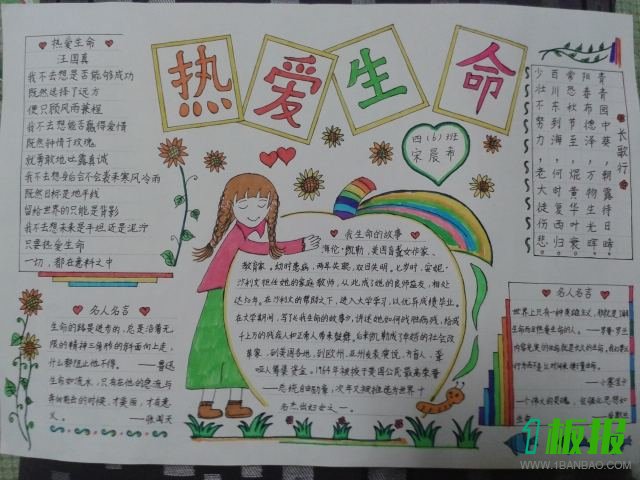 热爱生命
四(6)班
宋晨希
热爱生命
汪国真
我不去想是否能够成功
既然选择了远方
便只顾风雨兼程
我不去想能否赢得爱情
既然钟情于玫瑰
就勇敢地吐露真诚
我不去想身后会不会袭来寒风冷雨
既然目标是地平线
留给世界的只能是背影
我不去想未来是平坦还是泥泞
只要热爱生命
一切,都在意料之中
长歌行
青青园中葵,朝露待日晞
阳春布德泽,万物生光辉
常恐秋节至,焜黄华叶衰
百川东到海,何时复西归
少壮不努力,老大徒伤悲
我生命的故事
海伦·凯勒,美国盲聋女作家、
教育家,幼时患病,两耳失聪,双目失明。七岁时,安妮·
沙利文担任她的家庭教师,从此成了她的良师益友,相处
达50年。在沙利文的帮助下,进入大学学习,以优异成绩毕业。
在大学期间,写了《我生命的故事》,讲述她如何战胜病残,给成
千上万的残疾人和正常人带来鼓舞。后来凯勒成了卓越的社会改
革家,到美国各地,到欧洲、亚州发表演说,为盲人、聋
哑人筹集资金。1964年被授予美国公民最高荣誉
——总统自由勋章,次年又被推选为世界十
名杰出妇女之一。
名人名言
生命的路是进步的,总是沿着无
限的精神三角形的斜面向上走,
什么都阻止他不得。——鲁迅
生命如流水,只有在他的急流与
奔向前去的时候,才美丽,才有意
义。——张闻天
名人名言
世界上只有一种英雄主义,那就是了解
生命而且热爱生命的人。——罗曼·罗兰
——小塞涅卡
1板报
WWW.1BANBAO.COM